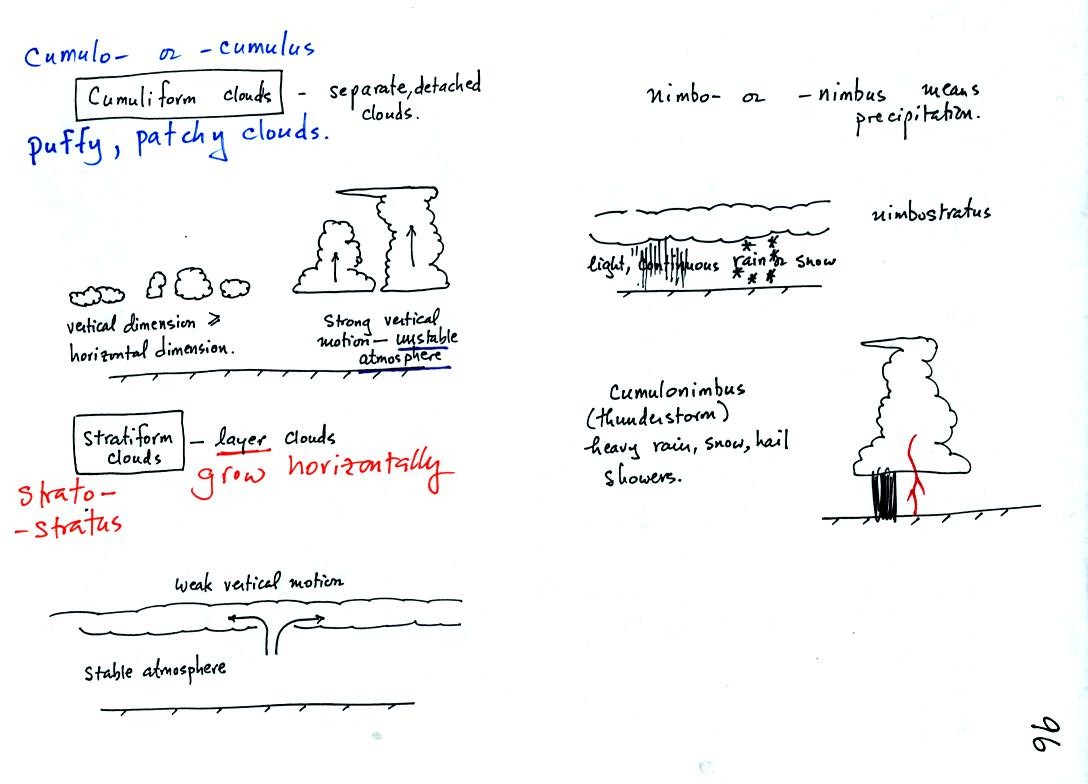 Cumulo- or -cumulus
Cumuliform clouds - separate, detached
clouds.
puffy, patchy clouds.
vertical dimension ≥
horizontal dimension.
Strong vertical
motion - unstable
atmosphere
Stratiform
clouds
- layer clouds
grow horizontally
Strato-
-stratus
weak vertical motion
Stable atmosphere
nimbo- or -nimbus means
precipitation.
nimbostratus
light, "continuous rain or snow
Cumulonimbus
(thunderstorm)
heavy rain, snow, hail
showers.
96